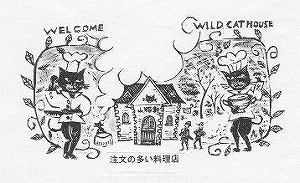 WELCOME
WILD CAT HOUSE
山猫軒
注文の多い料理店